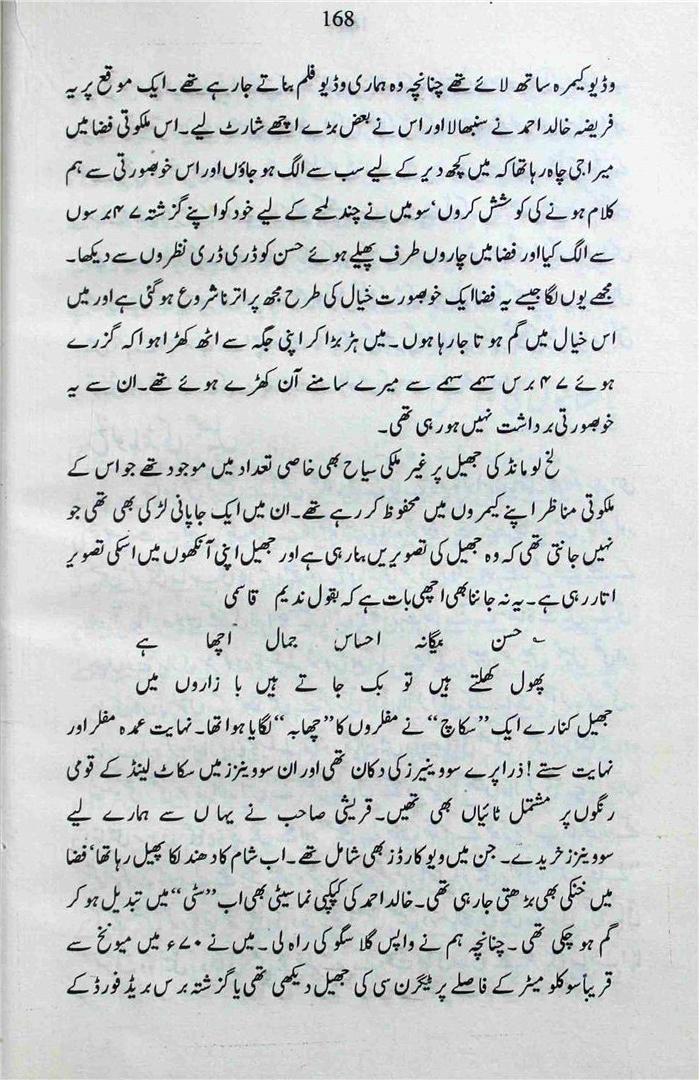 168
وڈیو کیمرہ ساتھ لائے تھے چنانچہ وہ ہماری وڈیو فلم بناتے جا رہے تھے۔ ایک موقع پر یہ
فریضہ خالد احمد نے سنبھالا اور اس نے بعض بڑے اچھے شارٹ لیے۔ اس ملکوتی فضا میں
میرا جی چاہ رہا تھا کہ میں کچھ دیر کے لیے سب سے الگ ہو جاؤں اور اس خوبصورتی سے ہم
کلام ہونے کی کوشش کروں‘ سو میں نے چند لمحے کے لیے خود کو اپنے گزشتہ ۴۷ برسوں
سے الگ کیا اور فضا میں چاروں طرف پھیلے ہوئے حسن کو ڈری ڈری نظروں سے دیکھا۔
مجھے یوں لگا جیسے یہ فضا ایک خوبصورت خیال کی طرح مجھ پر اترنا شروع ہو گئی ہے اور میں
اس خیال میں گم ہوتا جا رہا ہوں۔ میں ہڑبڑا کر اپنی جگہ سے اٹھ کھڑا ہوا کہ گزرے
ہوئے ۴۷ برس سہمے سہمے سے میرے سامنے آن کھڑے ہوئے تھے۔ ان سے یہ
خوبصورتی برداشت نہیں ہو رہی تھی۔
لخ لومانڈ کی جھیل پر غیر ملکی سیاح بھی خاصی تعداد میں موجود تھے جو اس کے
ملکوتی مناظر اپنے کیمروں میں محفوظ کر رہے تھے۔ ان میں ایک جاپانی لڑکی بھی تھی جو
نہیں جانتی تھی کہ وہ جھیل کی تصویریں بنا رہی ہے اور جھیل اپنی آنکھوں میں اسکی تصویر
اتار رہی ہے۔ یہ نہ جاننا بھی اچھی بات ہے کہ بقول ندیم قاسمی
؎ حسن بیگانہ احساس جمال اچھا ہے
پھول کھلتے ہیں تو بک جاتے ہیں بازاروں میں
جھیل کنارے ایک ’’سکاچ‘‘ نے مفلروں کا ’’چھابہ‘‘ لگایا ہوا تھا۔ نہایت عمدہ مفلر اور
نہایت سستے! ذرا پرے سووینیرز کی دکان تھی اور ان سووینرز میں سکاٹ لینڈ کے قومی
رنگوں پر مشتمل ٹائیاں بھی تھیں۔ قریشی صاحب نے یہاں سے ہمارے لیے
سووینرز خریدے۔ جن میں ویو کارڈز بھی شامل تھے۔ اب شام کا دھندلکا پھیل رہا تھا‘ فضا
میں خنکی بھی بڑھتی جا رہی تھی۔ خالد احمد کی کپکپی نما سیٹی بھی اب ’’سٹی‘‘ میں تبدیل ہو کر
گم ہو چکی تھی۔ چنانچہ ہم نے واپس گلاسگو کی راہ لی۔ میں نے ۷۰ء میں میونخ سے
قریباً سو کلومیٹر کے فاصلے پر ٹیگرن سی کی جھیل دیکھی تھی یا گزشتہ برس بریڈ فورڈ کے